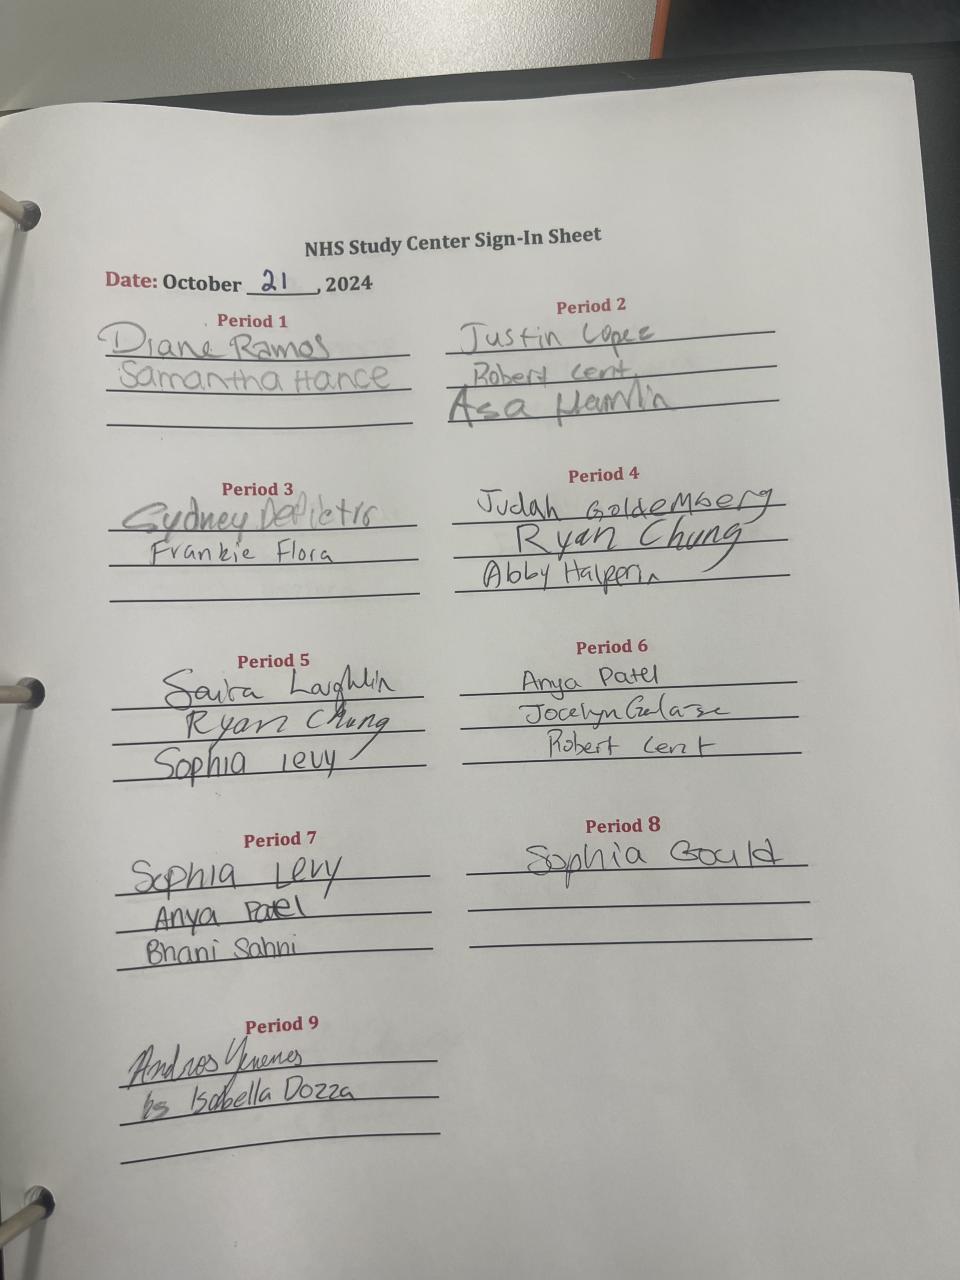 NHS Study Center Sign-In Sheet
Date: October 21, 2024
Period 1
Diane Ramos
Samantha Hance
Period 2
Justin Lopez
Robert Cent
Asa Hamlin
Period 3
Sydney DePietro
Frankie Flora
Period 4
Judah Goldemberg
Ryan Chung
Abby Halperin
Period 5
Saira Laughlin
Ryan Chung
Sophia Levy
Period 6
Anya Patel
Jocelyn
Robert Cent
Period 7
Sophia Levy
Anya Patel
Bhani Sahni
Period 8
Sophia Gould
Period 9
Andros
Isabella Dozza